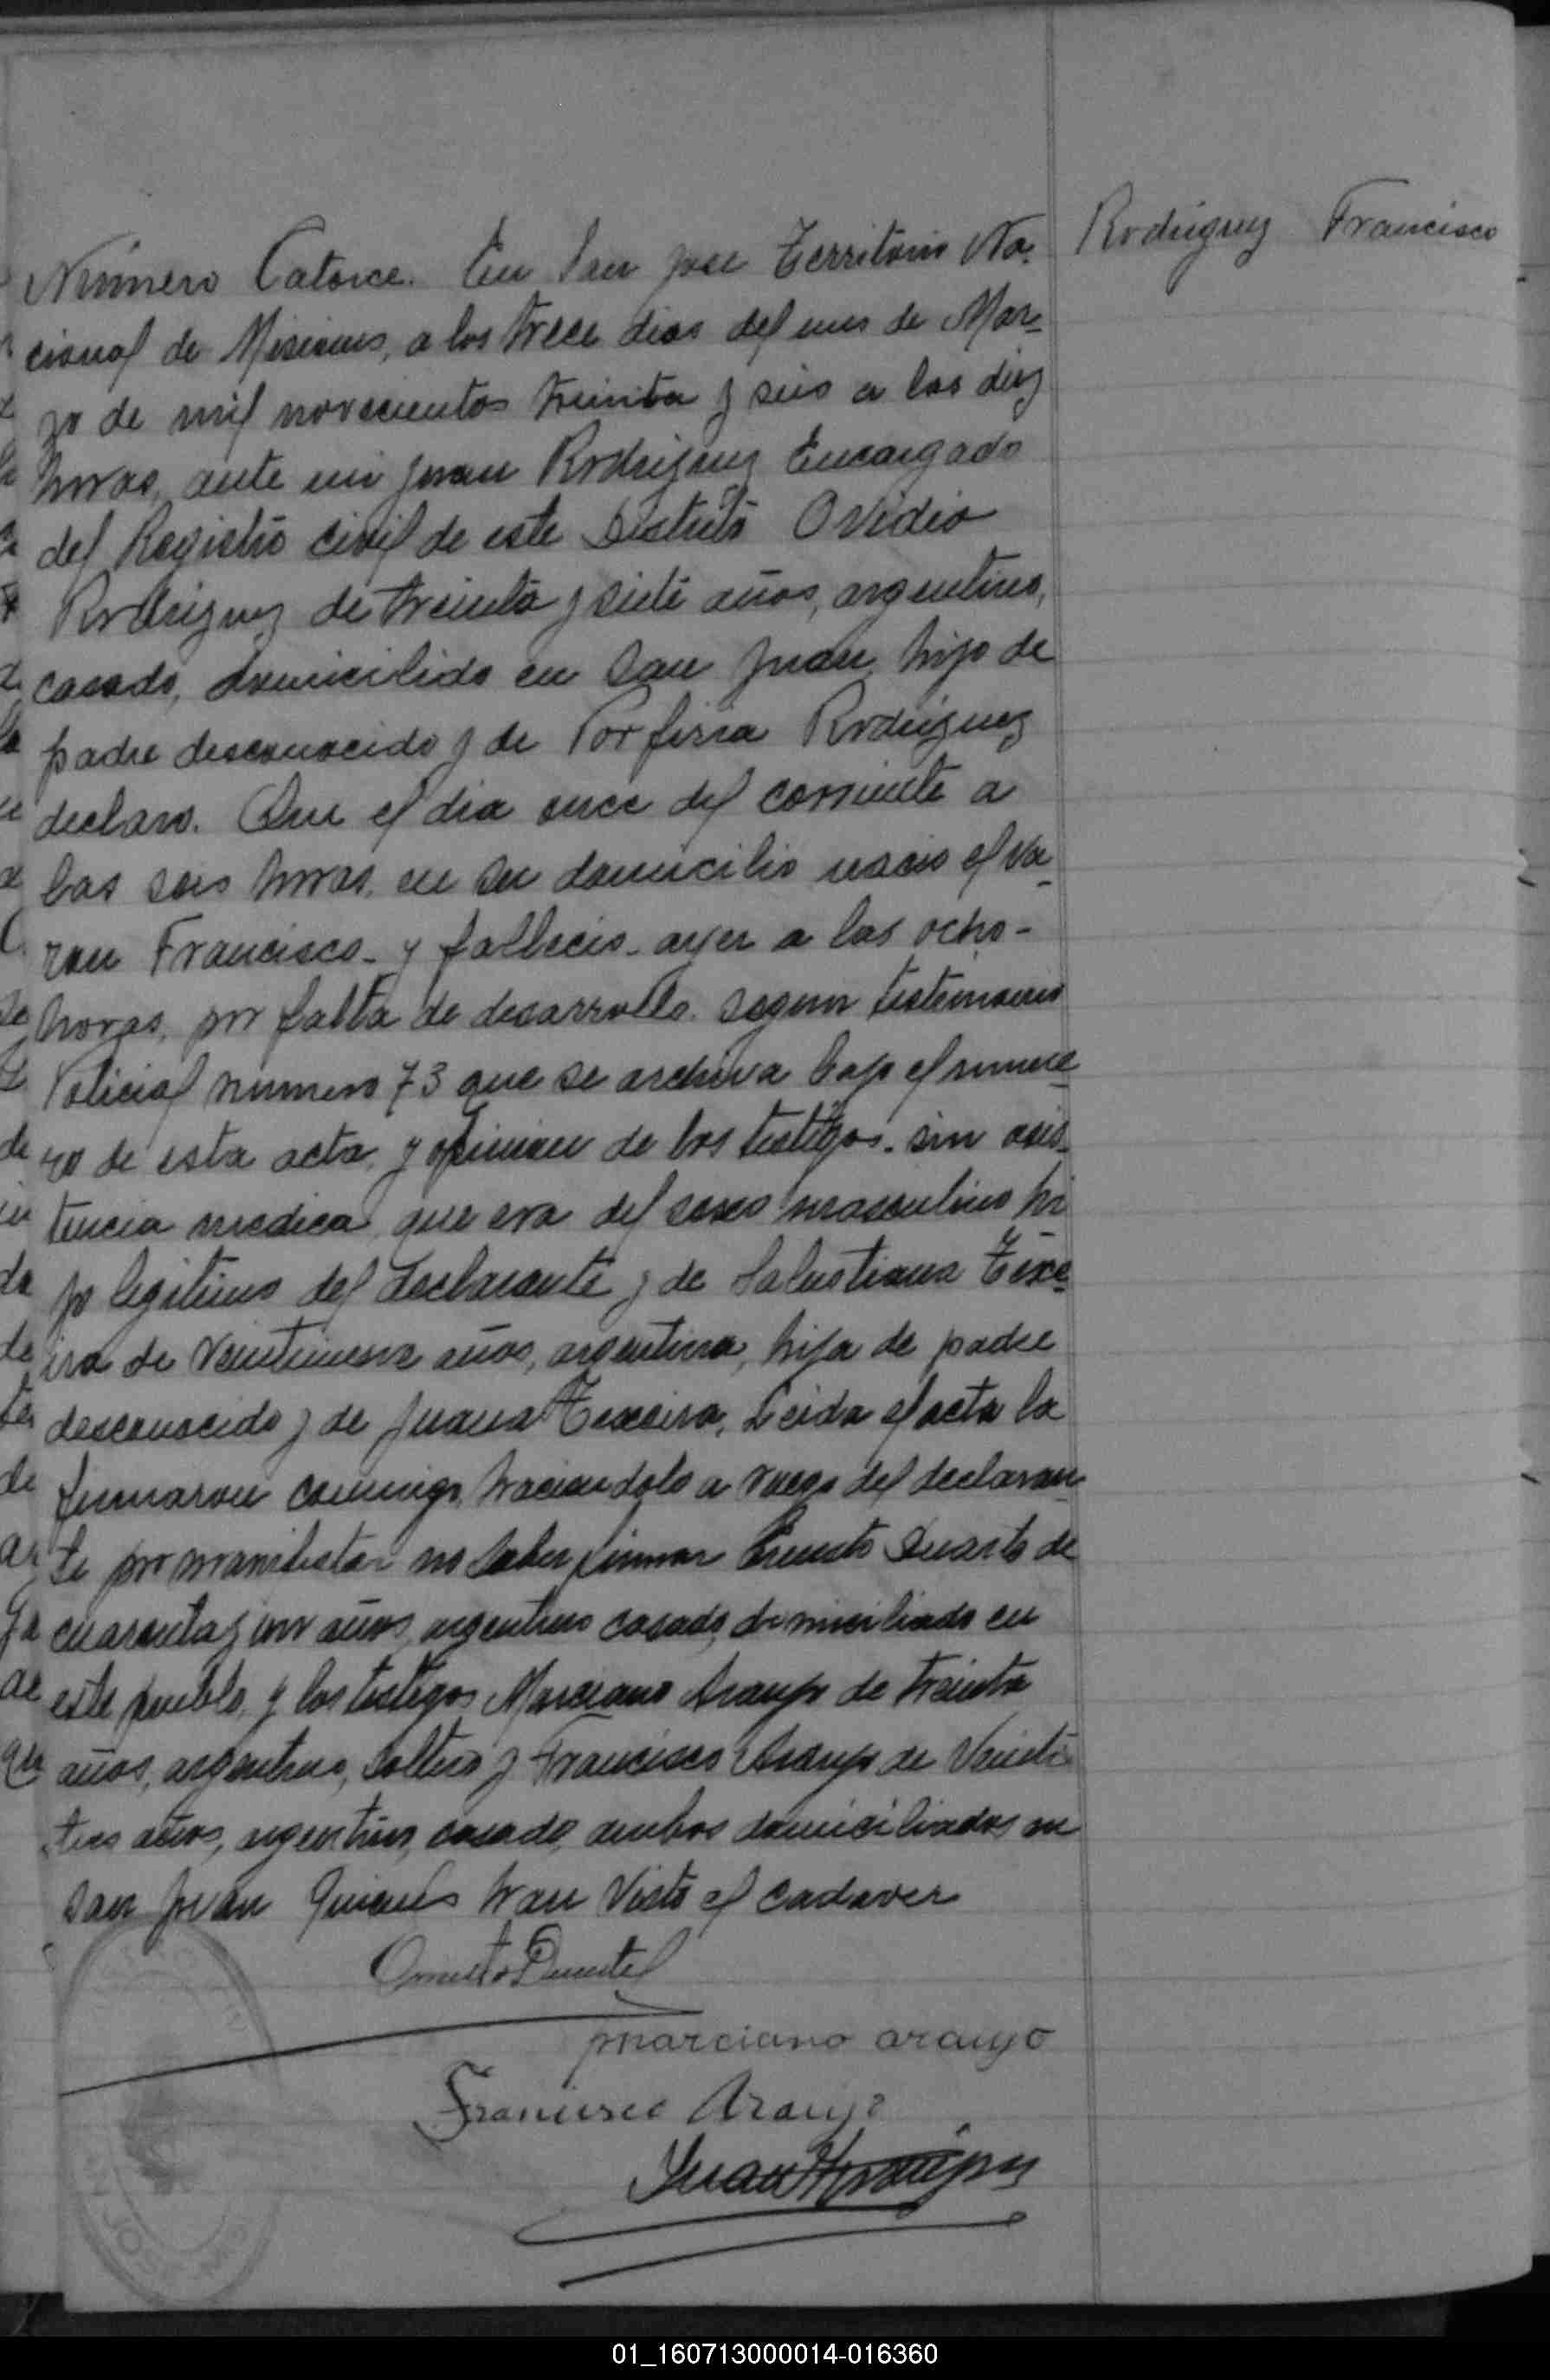 Rodriguez Francisco
Número Catorce. En San José Territorio Na-
cional de Misiones, a los trece dias del mes de Mar-
zo de mil novecientos treinta y seis a las diez
horas, ante mi Juan Rodriguez Encargado
del Registro civil de este Distrito Ovidio
Rodriguez de treinta y siete años, argentino,
casado, domicilido en San Juan, hijo de
padre desconocido y de Porfiria Rodriguez
declaro. Que el dia once del corriente a
las seis horas, en su domicilio nacio el va-
ron Francisco - y fallecio - ayer a las ocho -
horas, por falta de desarrollo. segun testimonio
Policial numero 73 que se archiva bajo el nume-
ro de esta acta, y opinion de los testigos. sin asis-
tencia medica, que era del sexo masculino hi-
jo legitimo del declarante y de Salustiana Texe-
ira de Veintinueve años, argentina, hija de padre
desconocido y de Juana Texeira. Leida el acta la
firmaron conmigo, haciendolo a ruego del declaran-
te por manifestar no saber firmar Ernesto de
cuarenta y un años, argentino casado, domiciliado en
este pueblo, y los testigos Marciano Araujo de treinta
años, argentino, soltero y Francisco Araujo de Veinti
tres años, argentino, casado, ambos domiciliados en
San Juan Quienes han Visto el cadaver
marciano araujo
Francisco Araujo
Juan Rodriguez
01_160713000014-016360